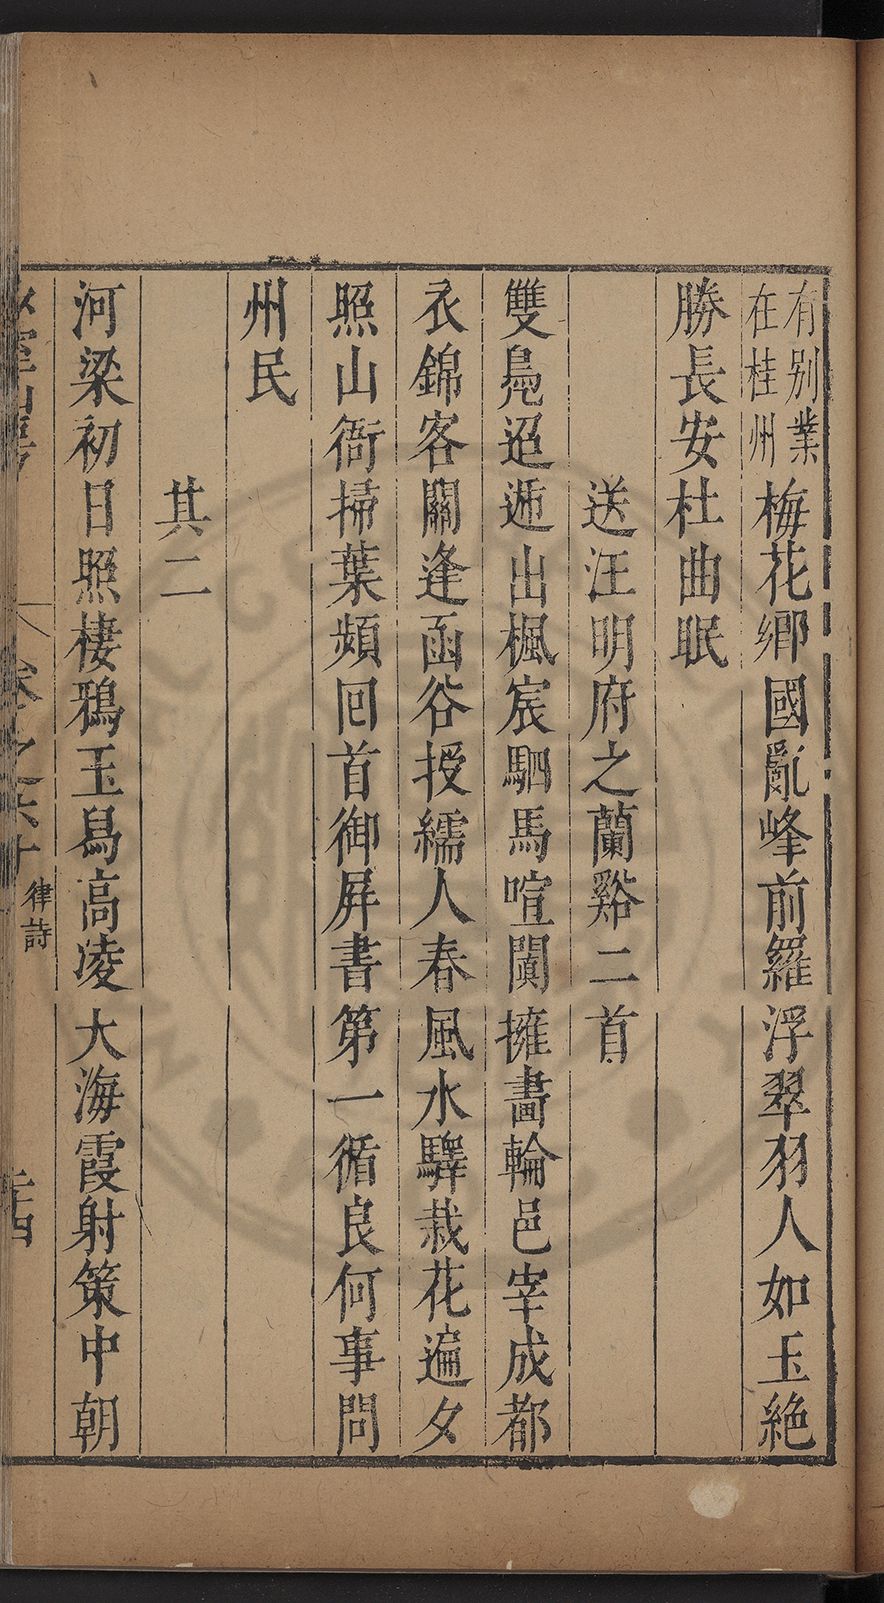 有别業
在桂州
梅花鄉國亂峰前羅浮翠羽人如玉絶
勝長安杜曲眠
送汪明府之蘭谿二首
雙鳧迢遞出楓宸駟馬喧闐擁畵輪邑宰成都
衣錦客關逢函谷授繻人春風水驛栽花遍夕
照山衙掃葉頻回首御屏書第一循良何事問
州民
其二
河梁初日照棲鴉玉舄高凌大海霞射策中朝
卷之六十
律詩